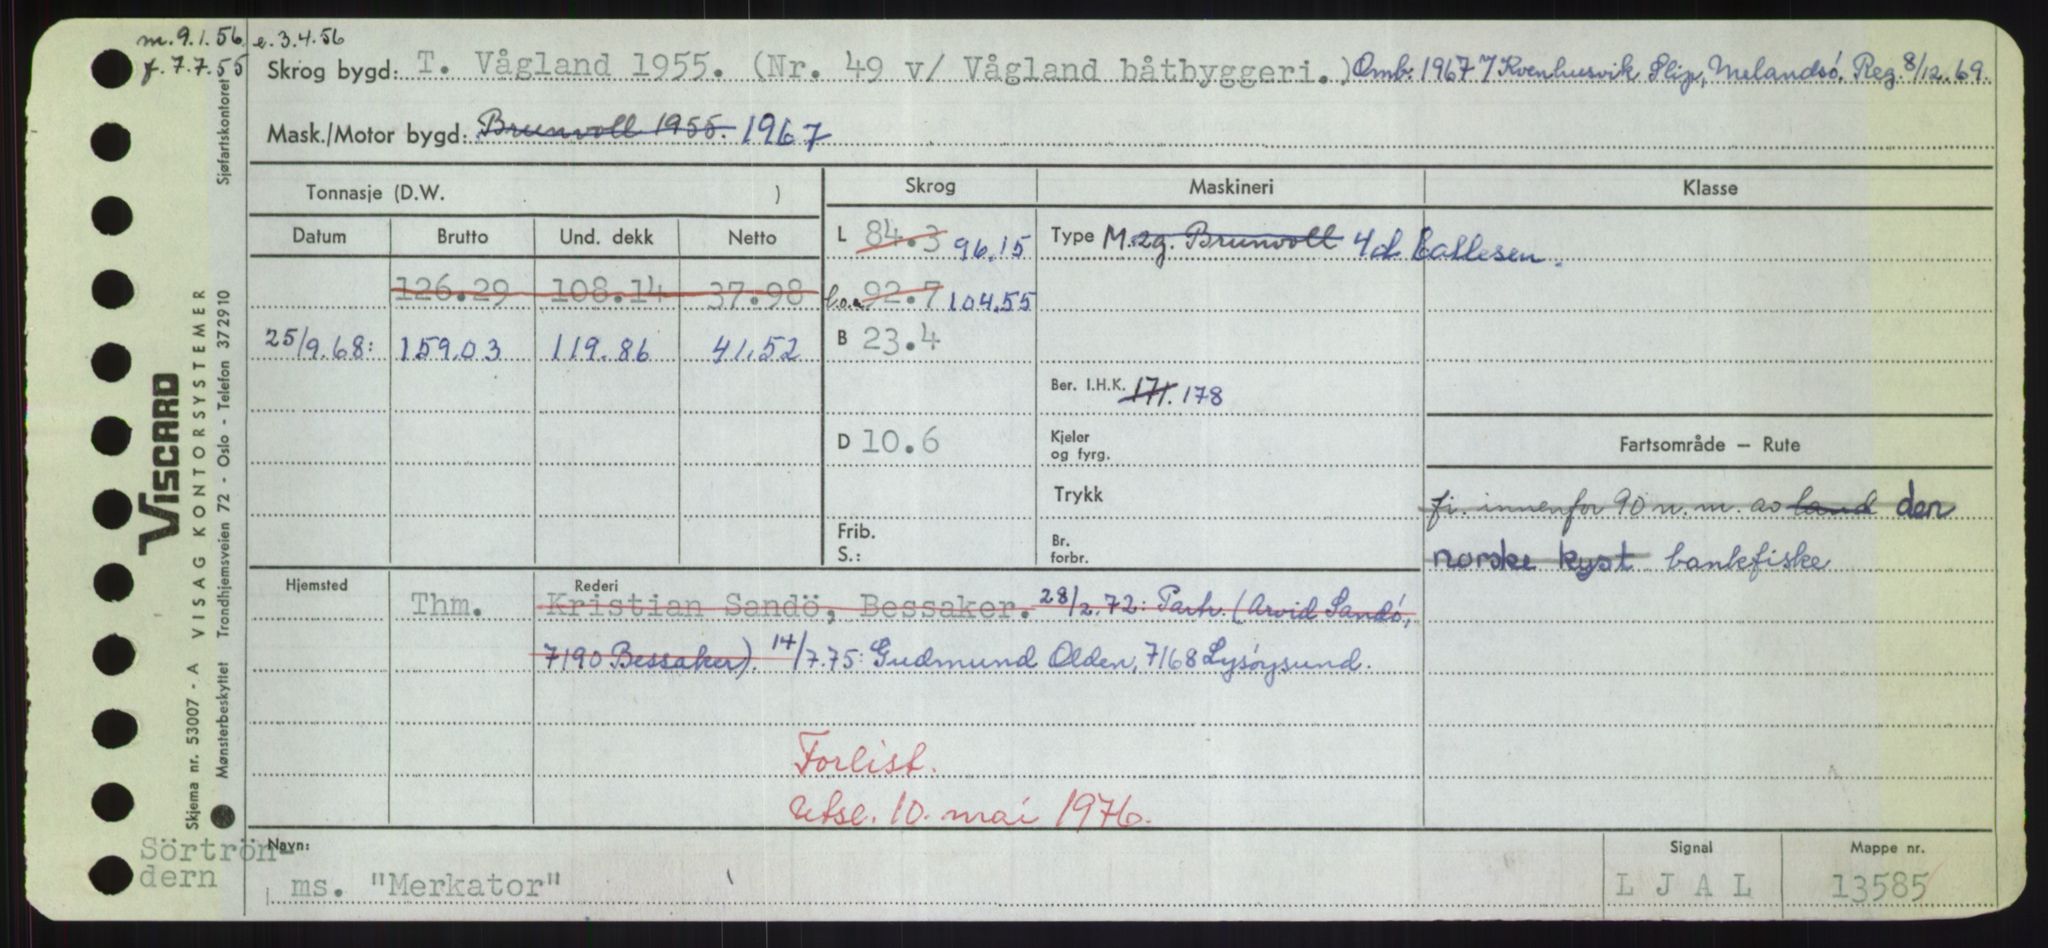 m. 9.1.56. e. 3.4.56
f. 7.7.55
Skrog bygd: T. Vågland 1955. (Nr. 49 v/ Vågland båtbyggeri.) Omb. 1967 Kvenhusvik Slip, Melandsö. Reg. 8/12.69.
Mask./Motor bygd: Brunvoll 1955. 1967
Tonnasje (D.W. )
Skrog
Maskineri
Klasse
Datum Brutto Und. dekk Netto
L 84.3 96,15
Type M. 2g. Brunvoll 4cl. Callesen.
126.29 108.14 37.98
l.o.a. 92.7 104,55
25/9.68: 159,03 119.86 41,52
B 23.4
Ber. I.H.K. 171. 178
D 10.6
Kjeler
og fyrg.
Fartsområde — Rute
Trykk
fi. innenfor 90 n. m. av land den
norske kyst bankfiske
Frib.
S.:
Br.
forbr.
Hjemsted
Rederi
Thm. Kristian Sandö, Bessaker. 28/2.72: Parh. (Arvid Sandö,
7190 Bessaker). 14/7.75: Gudmund Olden, 7168 Lysöysund.
Forlist.
Utsl. 10. mai 1976.
Navn:
Signal
Mappe nr.
Sörtrön-
dern
ms. "Merkator"
L J A L
13585
VISCARD
Skjema nr. 53007 - A VISAG KONTORSYSTEMER
Mønsterbeskyttet Trondhjemsveien 72 - Oslo - Telefon 372910
Sjøfartskontoret